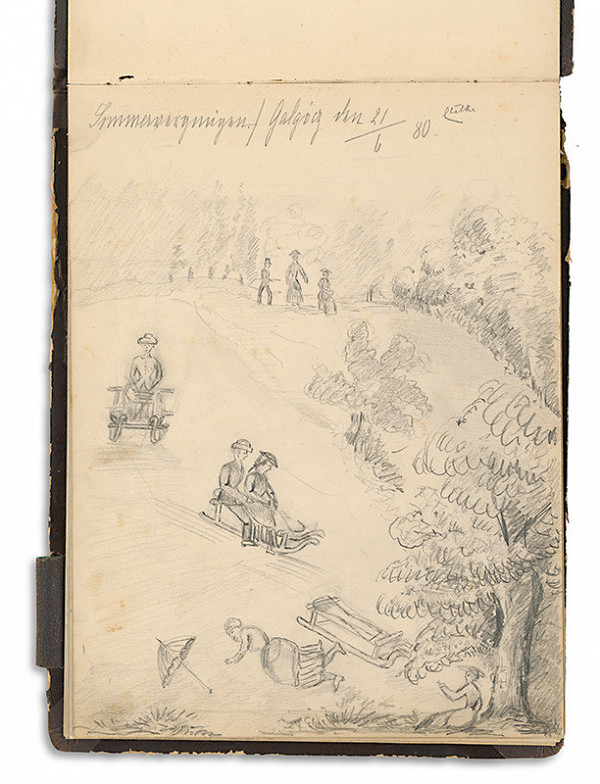 Sommervergnügen./ Galgócz den 21/6 80.